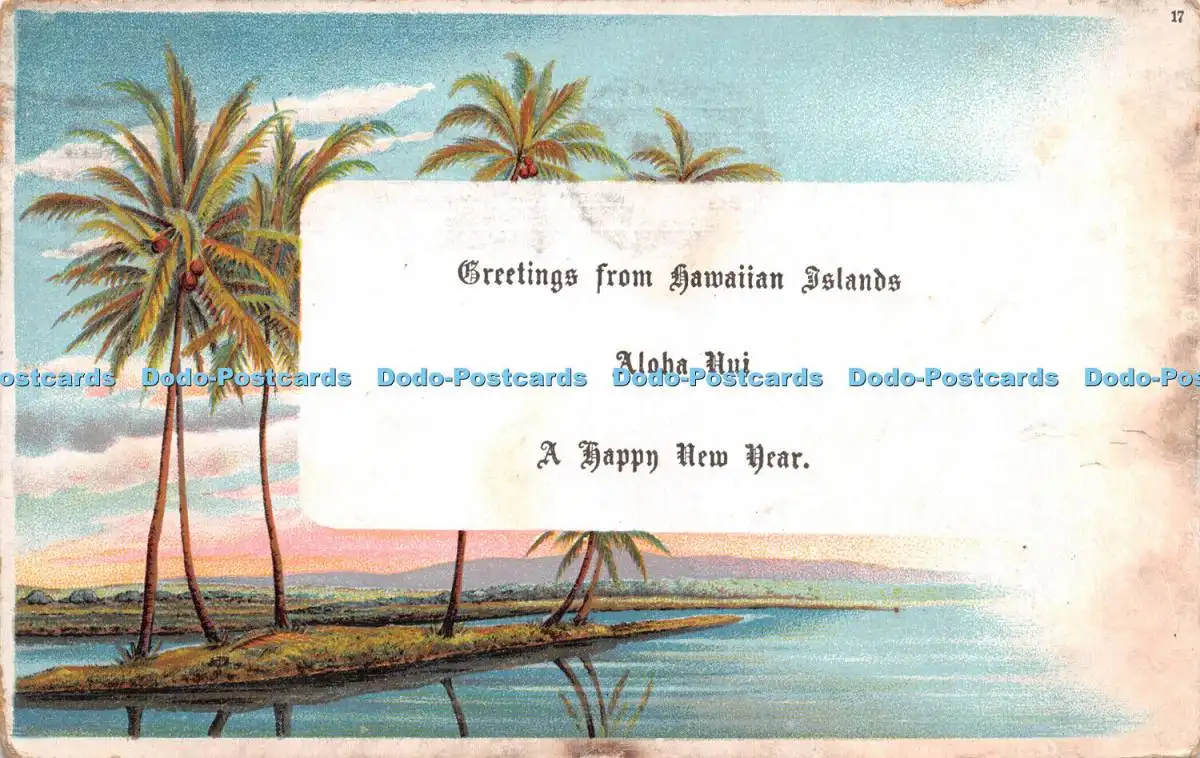 17
Greetings from Hawaiian Islands
Aloha Nui
ostcards Dodo-Postcards Dodo-Postcards Dodo-Postcards Dodo-Postcards Dodo-Postc
A Happy New Year.